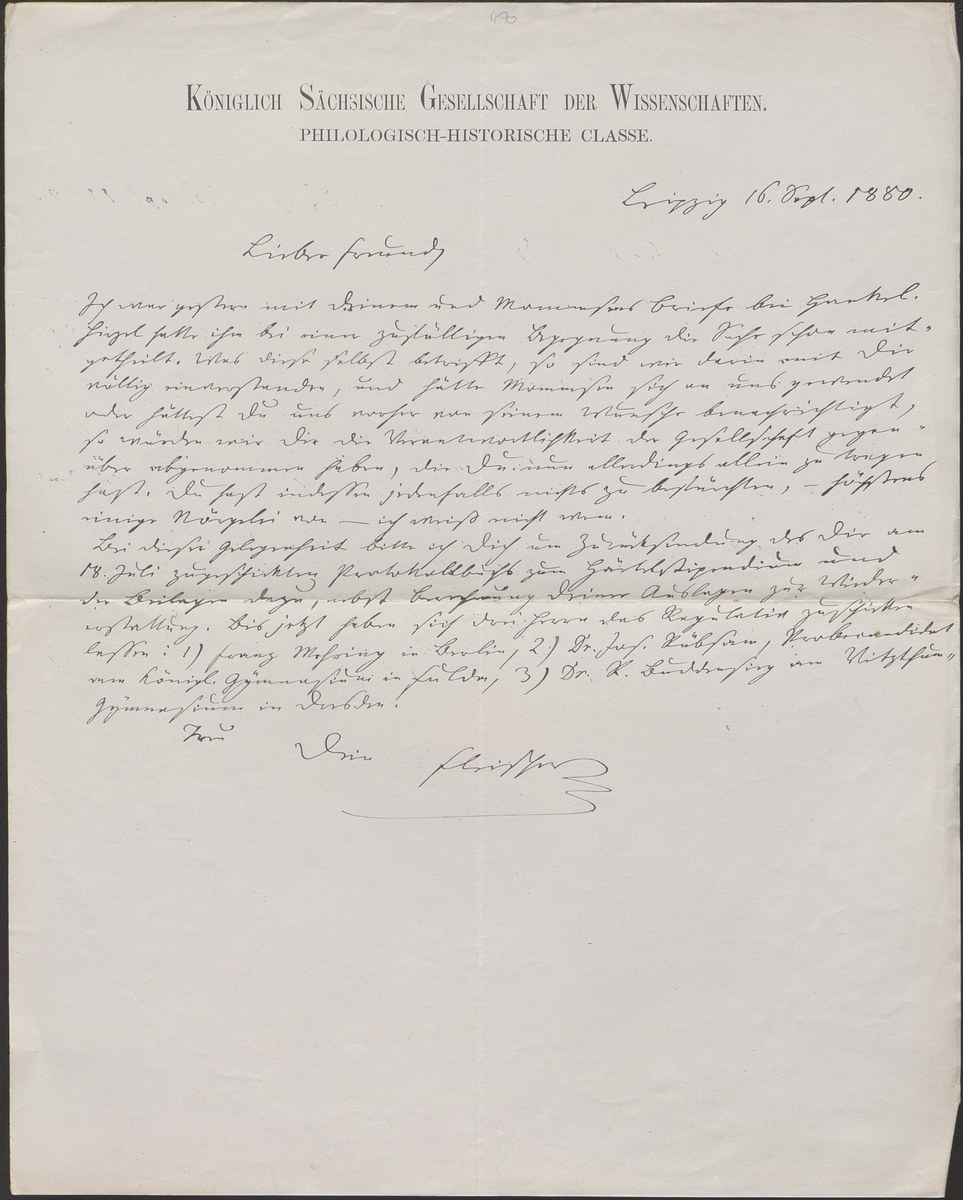 470
KÖNIGLICH SÄCHSISCHE GESELLSCHAFT DER WISSENSCHAFTEN.
PHILOLOGISCH-HISTORISCHE CLASSE.
Leipzig 16. Sept. 1880.
Lieber Freund
Ich war gestern mit Deinem und Mommsens Briefe bei Hankel.
Hirzel hatte ihm bei einer zufälligen Begegnung die Sache schon mit-
getheilt. Was diese selbst betrifft, so sind wir darin mit Dir
völlig einverstanden, und hätte Mommsen sich an uns gewendet
oder hättest Du uns vorher von seinem Wunsche benachrichtigt,
so würden wir Dir die Verantwortlichkeit der Gesellschaft gegen-
über abgenommen haben, die Du nun allerdings allein zu tragen
hast. Du hast indessen jedenfalls nichts zu befürchten, – höchstens
einige Nörgelei von — ich weiß nicht wem.
Bei dieser Gelegenheit bitte ich Dich um Zurücksendung des Dir am
18. Juli zugeschickten Protokollbuchs zum Härtelstipendium und
der Beilagen dazu, nebst Berechnung Deiner Auslagen zur Wieder-
erstattung. Bis jetzt haben sich drei Herrn das Regulativ zuschicken
lassen: 1) Franz Mehring in Berlin, 2) Dr. Jos. Rübsam, Probecandidat
am Königl. Gymnasium in Fulda, 3) Dr. R. Buddensieg am Vitzthum-
Gymnasium in Dresden.
Treu
Dein Fleischer